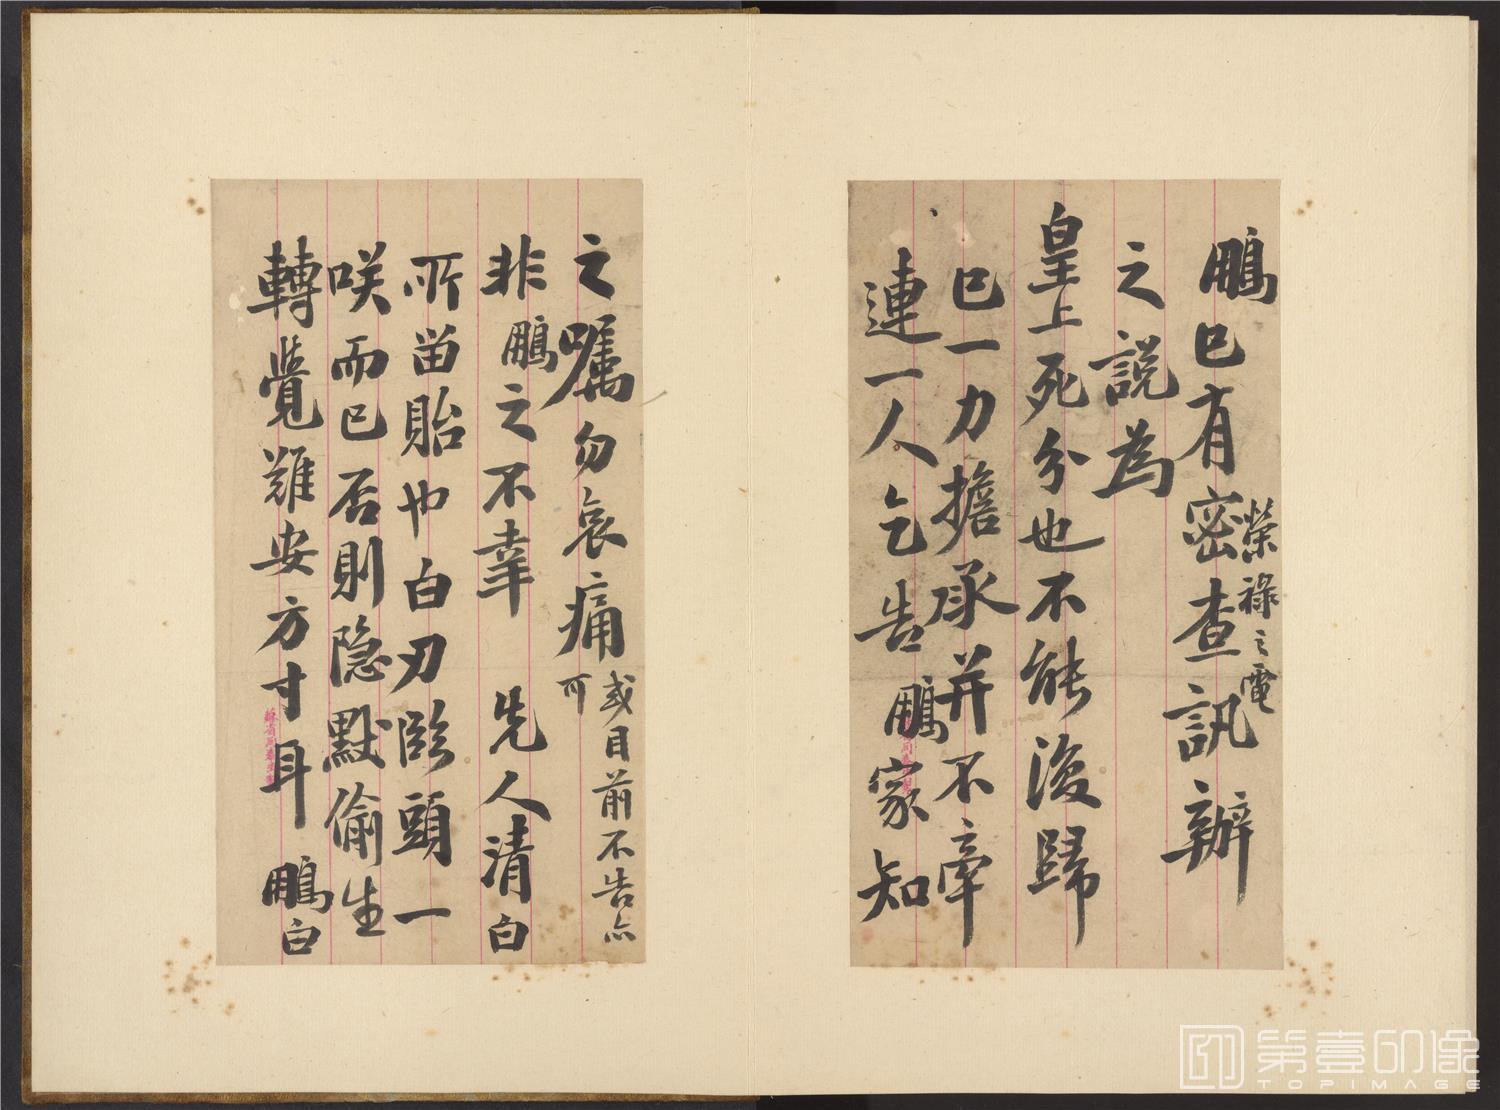 鵬已有密查訊辦
榮祿之電
之說為
皇上死分也不能復歸
已一力擔承并不牽
連一人乞告鵬家知
之囑勿哀痛
或目前不告亦
可
非鵬之不幸 先人清白
所留貽也白刃臨頭一
咲而已否則隐默偷生
轉覺難安方寸耳 鵬白
第壹印像
TOPIMAGE